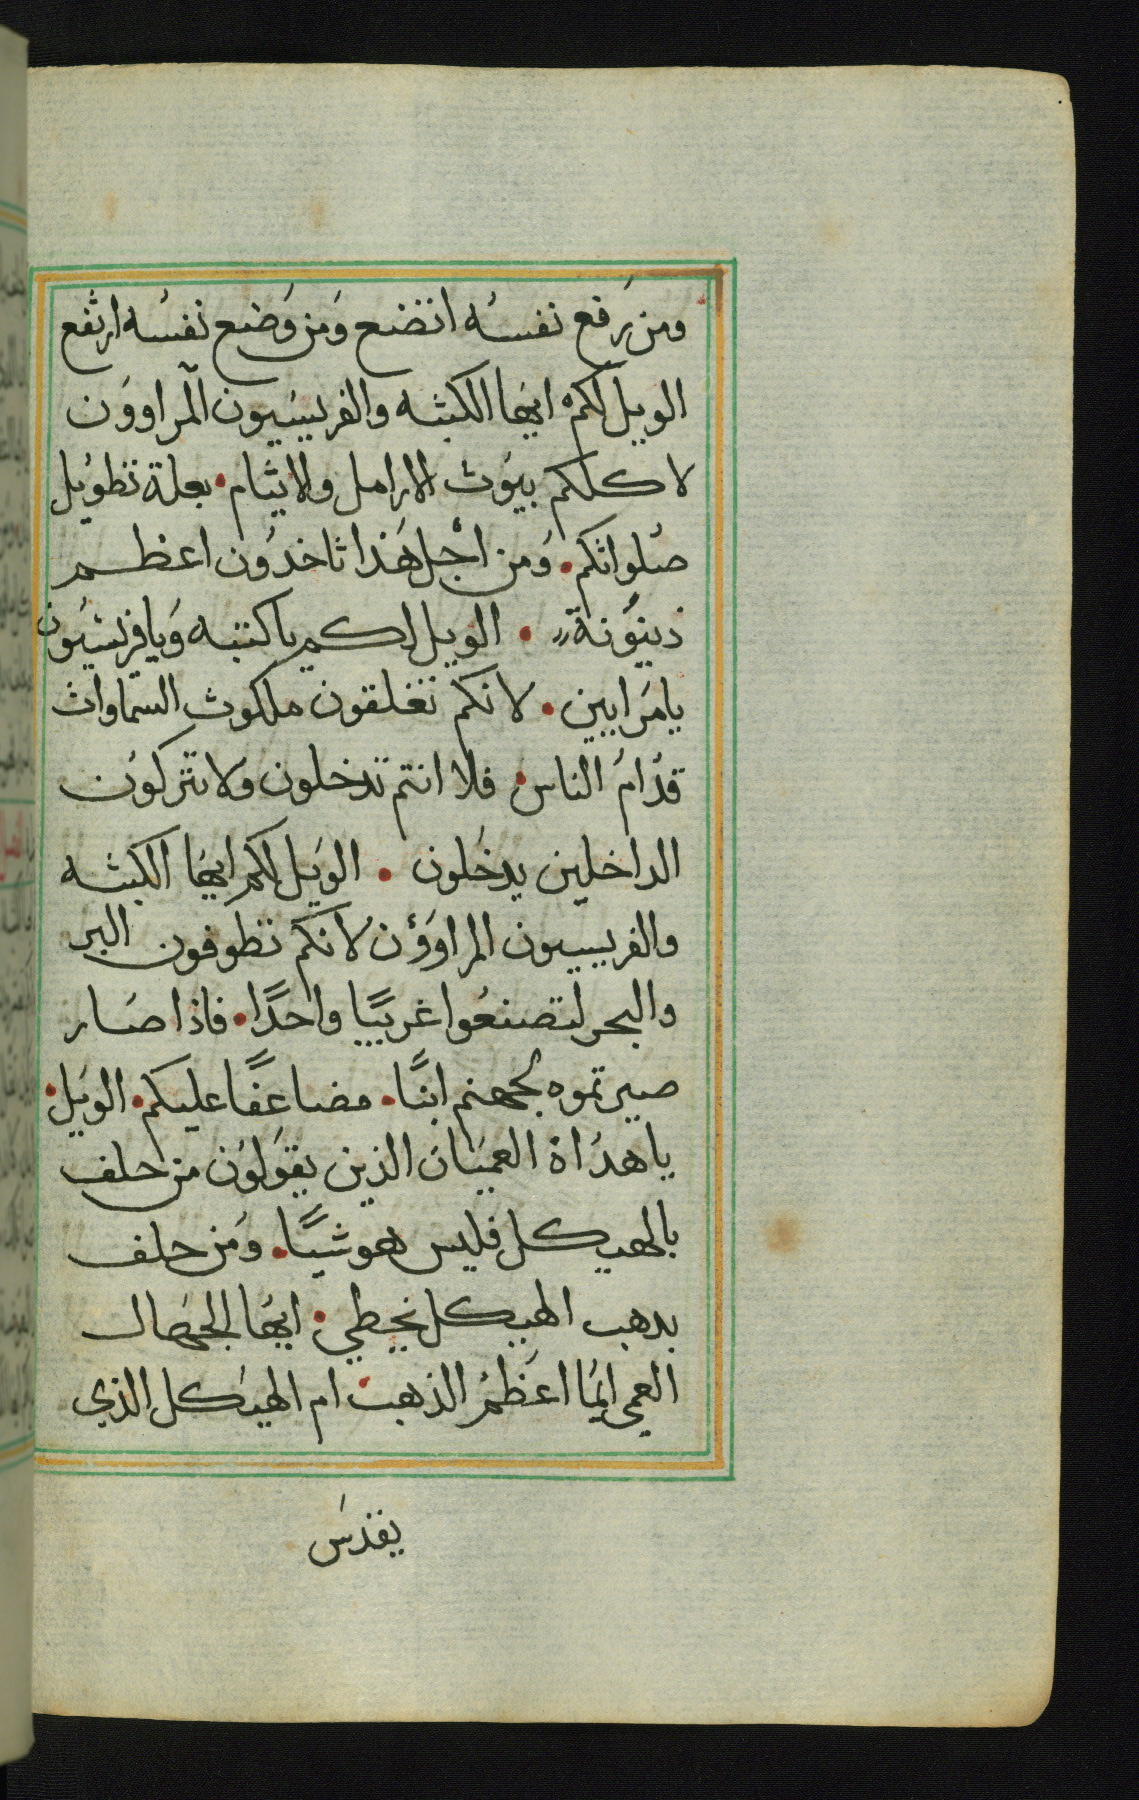 ومن رفع نفسه اتضع ومن وضع نفسه ارتفع
الويل لكم ايها الكتبه والفريسيون المراوون
لاكلكم بيوت الارامل والايتام. بعلة تطويل
صلواتكم. ومن اجل هذا تاخدون اعظم
دينونة. الويل لكم ياكتبه ويافريسيون
يامرايين. لانكم تغلقون ملكوت السماوات
قدام الناس. فلا انتم تدخلون ولا تتركون
الداخلين يدخلون. الويل لكم ايها الكتبه
والفريسيون المراوؤن لانكم تطوفون البر
والبحر لتصنعوا غريبًا واحدًا. فاذا صار
صيرتموه لجهنم ابنًا. مضاعفًا عليكم. الويل.
ياهداة العميان الذين يقولون من حلف
بالهيكل فليس هو شيًا. ومن حلف
بدهب الهيكل يخطي. ايها الجهال
العمي ايما اعظم الذهب. ام الهيكل الذي
يقدس